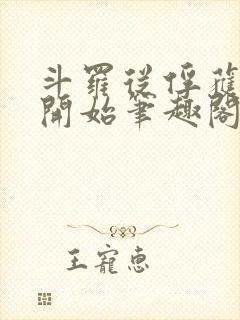 斗羅從俘蘿
開始筆趣閣
王寵惠